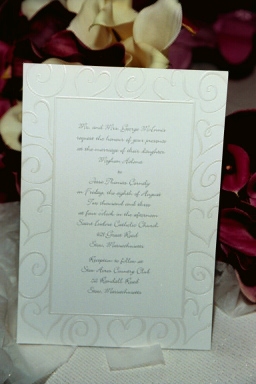 Mr. and Mrs. George
request the honour of your presence
at the marriage of their daughter
Meghan
to
Thomas
on Friday, the eighth of August
Two thousand and three
at four o'clock in the afternoon
Saint Catholic Church
Road
Massachusetts
Reception to follow at
Country Club
Randall Road
Massachusetts